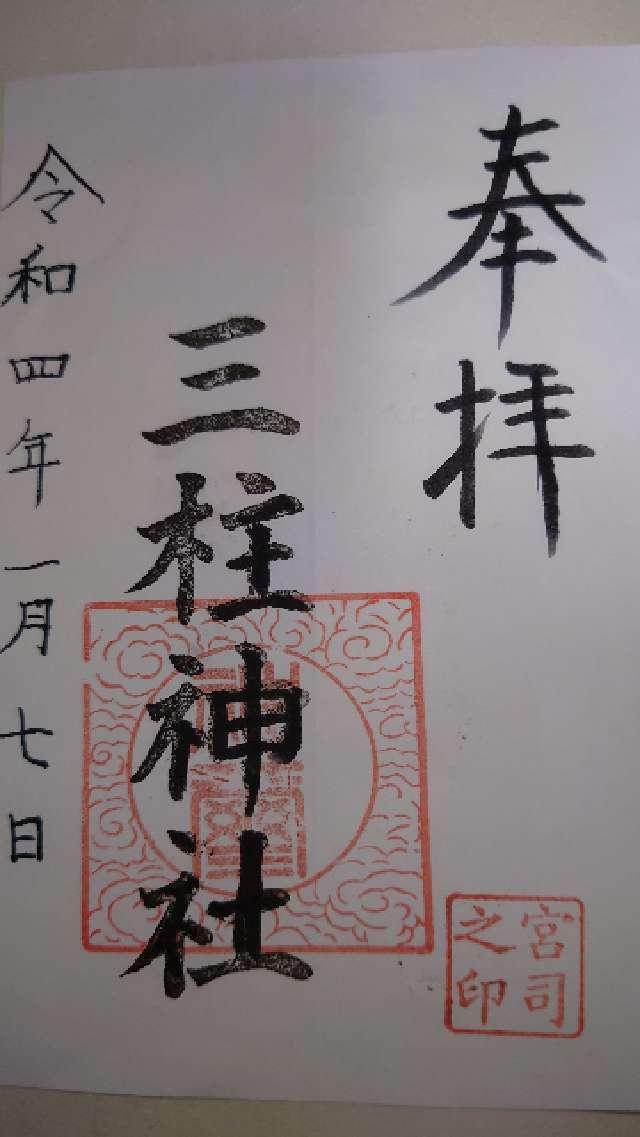 奉拝
三柱神社
宮司之印
令和四年一月七日